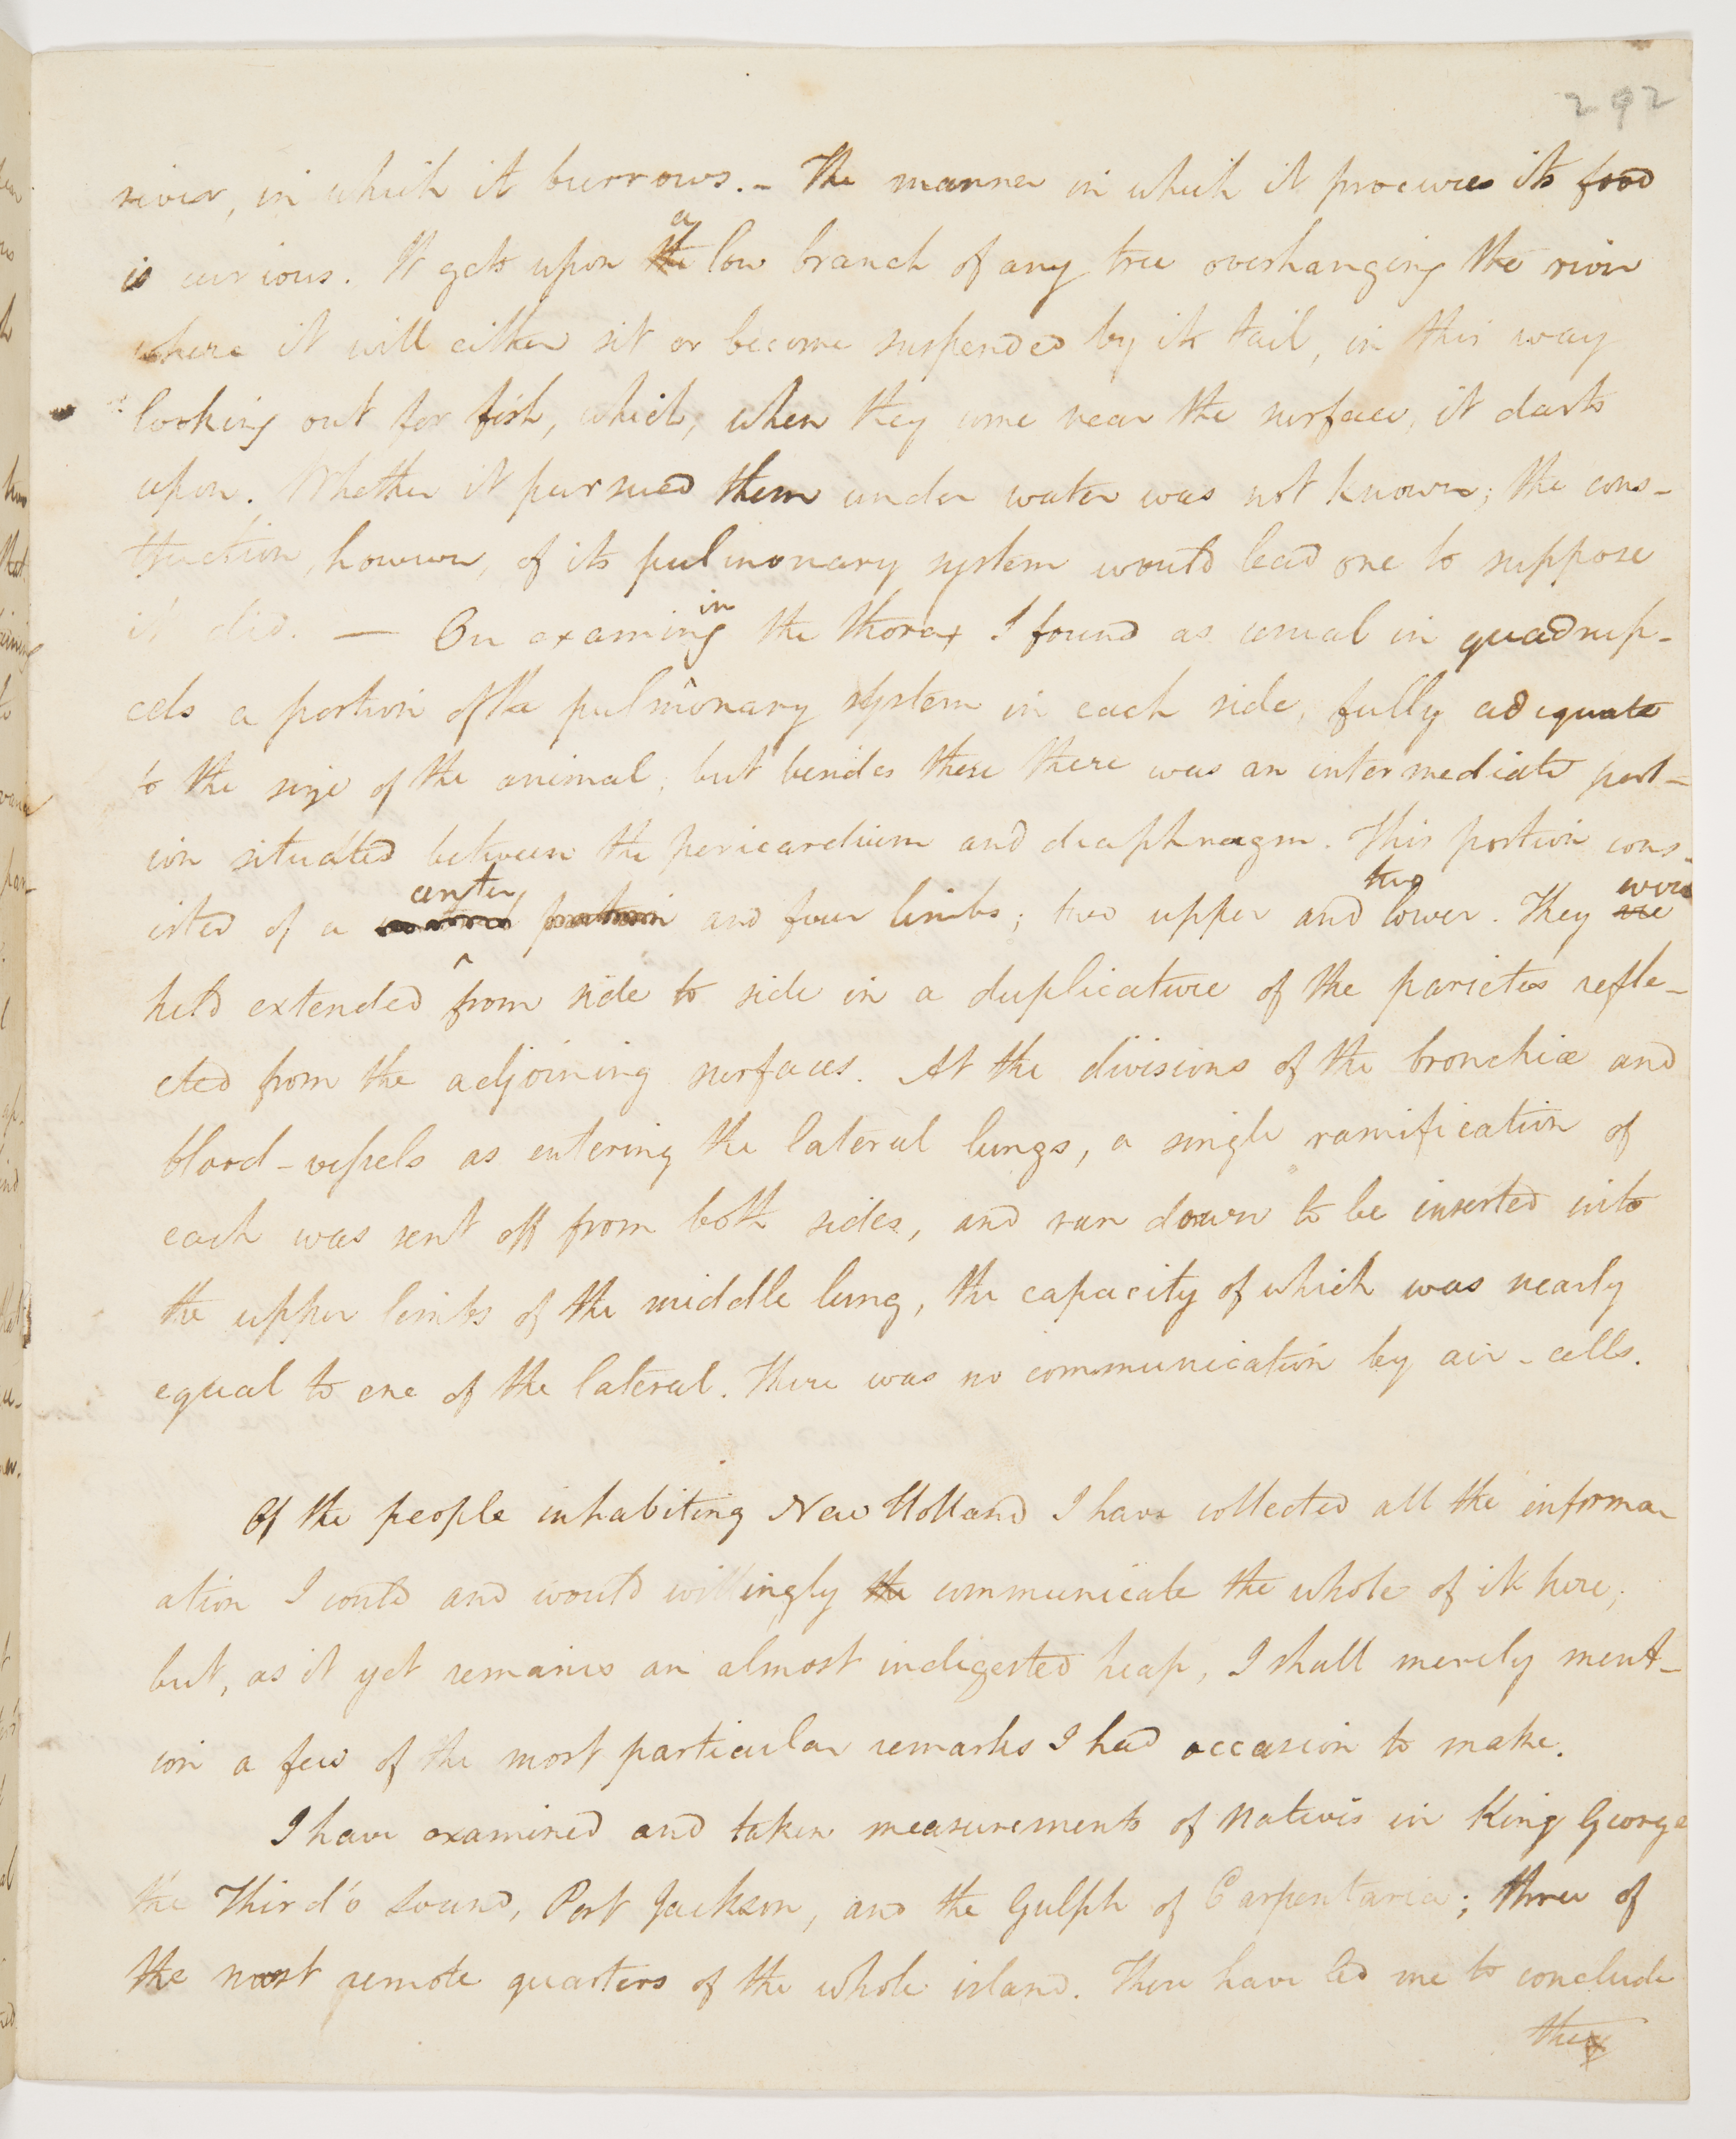 292
river, in which it burrows. - The manner in which it procures its food
is curious. It gets upon the a low branch of any tree overhanging the river
where it will either sit or become suspended by its tail, in this way
looking out for fish, which, when they come near the surface, it darts
upon. Whether it pursued them under water was not known; the cons-
truction, however, of its pulmonary system would lead one to suppose
it did. — On examining in the thorax I found as usual in quadrup-
eds a portion of the pulmonary system in each side, fully adequate
to the size of the animal; but besides these there was an intermediate port-
ion situated between the pericardium and diaphragm. This portion cons-
isted of a center portion and four limbs; two upper and two lower. They are were
held extended ^ from side to side in a duplicature of the parietes refle-
cted from the adjoining surfaces. At the divisions of the bronchiæ and
blood-vessels as entering the lateral lungs, a single ramification of
each was sent off from both sides, and ran down to be inserted into
the upper limbs of the middle lung, the capacity of which was nearly
equal to one of the lateral. There was no communication by air-cells.
Of the people inhabiting New Holland I have collected all the inform-
ation I could and would willingly the communicate the whole of it here;
but, as it yet remains an almost indigested heap, I shall merely ment-
ion a few of the most particular remarks I had occasion to make.
I have examined and taken measurements of natives in King George
the Third's Sound, Port Jackson, and the Gulph of Carpentaria; three of
the most remote quarters of the whole island. These have led me to conclude
they